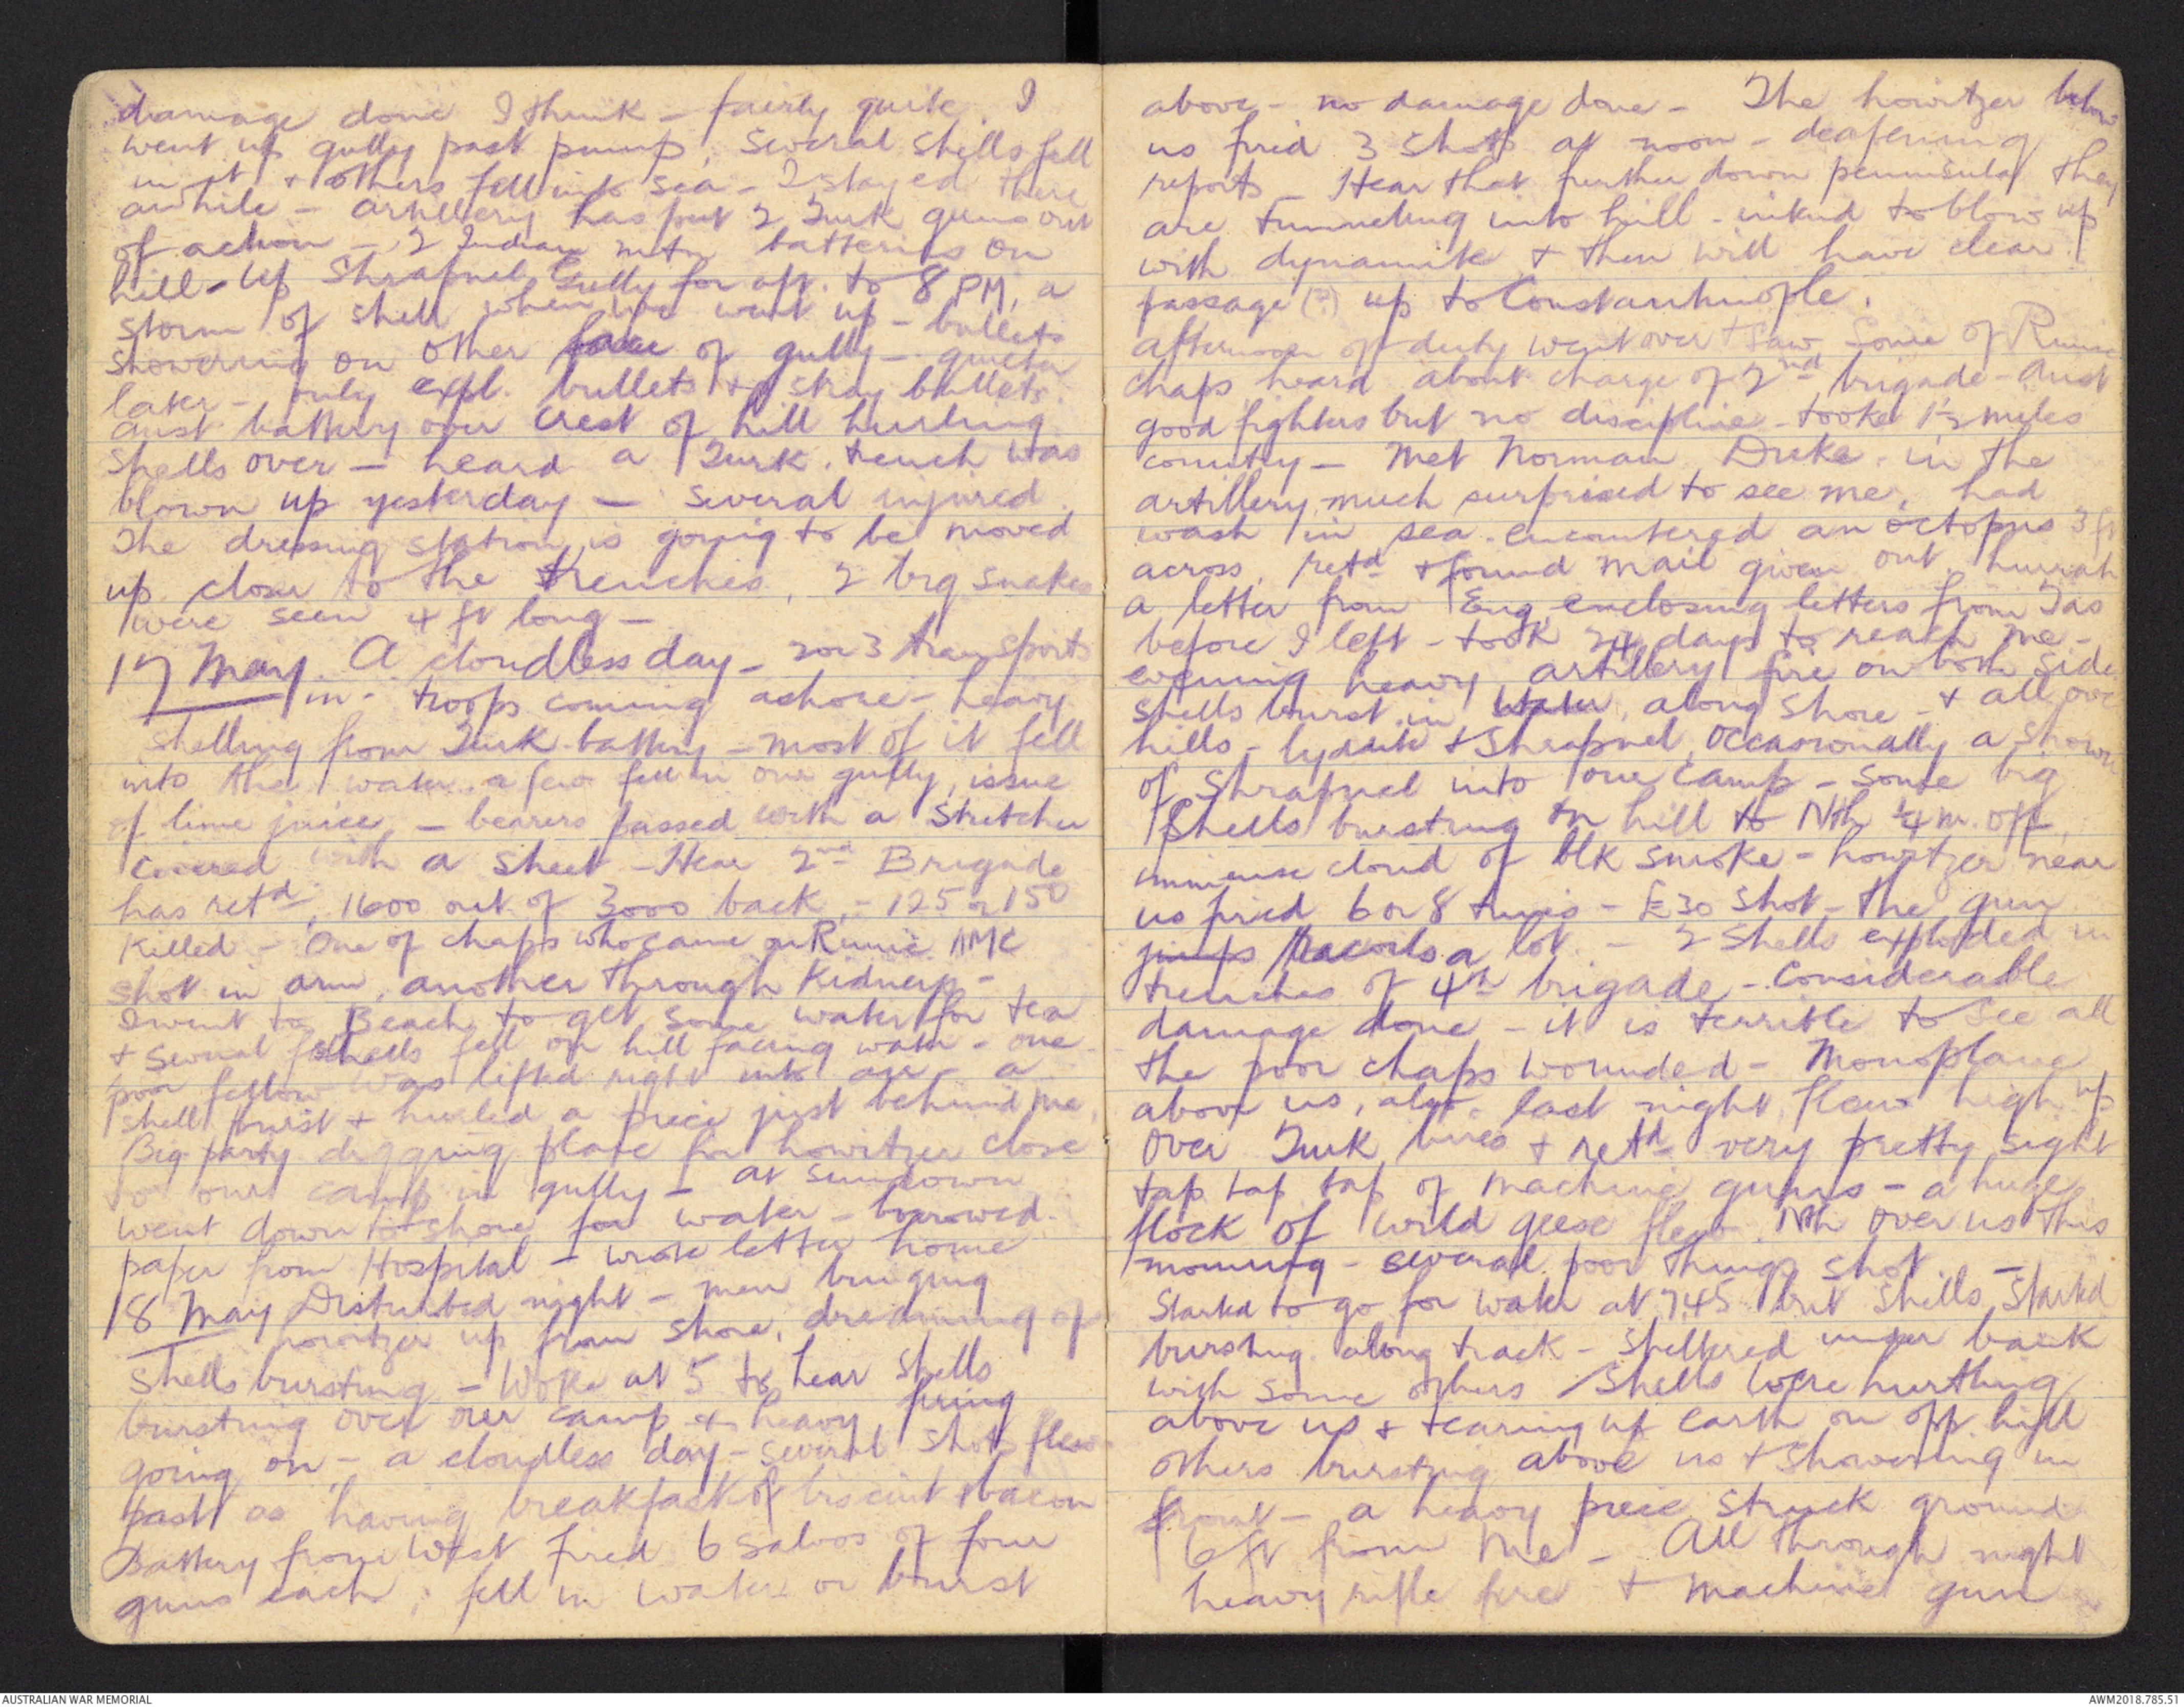 damage done I think - fairly quite. I
went up gully past pump, several shells fell
in it & others fell into sea - I stayed there
awhile - artillery has put 2 Turk guns out
of action - 2 Indian mtn batteries on
hill - Up Shrapnel Gully for aft. to 8 PM, a
storm of shell when we went up - bullets
showering on other face of gully - quieter
later - only expl. bullets & stray bullets.
Aust battery over crest of hill hurling
shells over - heard a Turk. trench was
blown up yesterday - several injured.
The dressing station is going to be moved
up closer to the trenches. 2 big snakes
were seen 4 ft long -
17 May. A cloudless day - 2 or 3 transports
in - troops coming ashore - heavy
shelling from Turk battery - most of it fell
into the water a few fell in our gully, issue
of lime juice, - bearers passed with a stretcher
covered with a sheet - Hear 2nd Brigade
has retd, 1600 out of 3000 back, - 125 or 150
killed - One of chaps who came on Runic AMC
shot in arm, another through kidneys -
I went to Beach to get some water for tea
& several shells fell on hill facing water - one
poor fellow was lifted right into air - a
shell burst & hurled a piece just behind me.
Big party digging place for howitzer close
to our camp in gully - at sundown
went down to shore for water - borrowed
paper from Hospital - wrote letter home
18 May Disturbed night - men bringing
howitzer up from shore, dreaming of
shells bursting - Woke at 5 to hear shells
bursting over our camp & heavy firing
going on - a cloudless day - several shots flew
past as having breakfast of biscuit & bacon
Battery from West fired 6 salvos of four
guns each; fell in water or burst
above - no damage done - The howitzer below
us fired 3 shots at noon - deafening
reports - Hear that further down peninsula they
are tunneling into hill - intend to blow up
with dynamite & then will have clear
passage (?) up to Constantinople.
afternoon off duty went over & saw some of Runic
chaps heard about charge of 2nd brigade - Aust
good fighters but no discipline - tooke 1½ miles
country - Met Norman Duke in the
artillery much surprised to see me, had
wash in sea - encountered an octopus 3 ft
across, retd & found mail given out, hurrah
a letter from Eng enclosing letters from Tas
before I left - took 24 days to reach me -
evening heavy artillery fire on both side
shells burst in water, along shore - & all over
hills - lyddite & Shrapnel, occasionally a shower
of Shrapnel into our camp - some big
shells bursting on hill to Nth ¼ m. off.
immense cloud of blk smoke - howitzer near
us fired 6 or 8 times - £30 shot - the gun
jumps & recoils a lot. - 2 Shells exploded in
trenches of 4th brigade - Considerable
damage done - it is terrible to see all
the poor chaps wounded - Monoplane
above us, also last night flew high up
over Turk lines & retd very pretty sight
tap tap tap of machine guns - a huge
flock of wild geese flew Nth over us this
morning - several poor things shot. -
Started to go for water at 7.45 but shells started
bursting along track - sheltered under bank
with some others / Shells were hurtling
above us & tearing up earth on opp. hill
others bursting above us & showering in
front - a heavy piece struck ground
6 ft from me - All through night
heavy rifle fire & machine gun
AUSTRALIAN WAR MEMORIAL
AWM2018.785.51